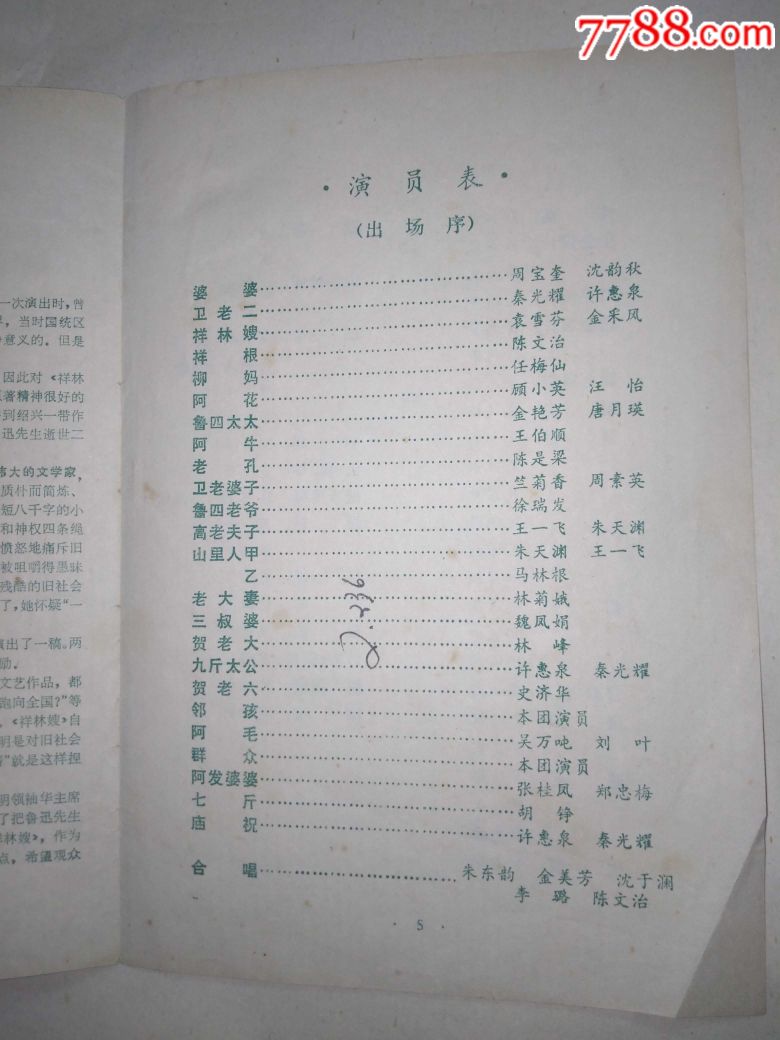 7788.com
·演员表·
(出场序)
婆婆……周宝奎 沈韵秋
卫老二……秦光耀 许惠泉
祥林嫂……袁雪芬 金采风
祥根……陈文治
柳妈……任梅仙
阿花……顾小英 汪怡
鲁四太太……金艳芳 唐月瑛
阿牛……王伯顺
老孔……陈是梁
卫老婆子……竺菊香 周素英
鲁四老爷……徐瑞发
高老夫子……王一飞 朱天渊
山里人甲……朱天渊 王一飞
乙……马林根
老大妻……林菊娥
三叔婆……魏凤娟
贺老大……林峰
九斤太公……许惠泉 秦光耀
贺老六……史济华
邻孩……本团演员
阿毛……吴万吨 刘叶
群众……本团演员
阿发婆婆……张桂凤 郑忠梅
七斤……胡铮
庙祝……许惠泉 秦光耀
合唱……朱东韵 金美芳 沈于澜
李璐 陈文治
·5·
一次演出时,曾
,当时国统区
意义的。但是
因此对《祥林
原著精神很好的
到绍兴一带作
迅先生逝世二
伟大的文学家,
质朴而简炼、
短八千字的小
和神权四条绳
愤怒地痛斥旧
被咀嚼得愚昧
残酷的旧社会
了,她怀疑“一
演出了一稿。两
励。
文艺作品,都
跑向全国?”等
,《祥林嫂》自
明是对旧社会
”就是这样捏
明领袖华主席
了把鲁迅先生
林嫂》,作为
点,希望观众